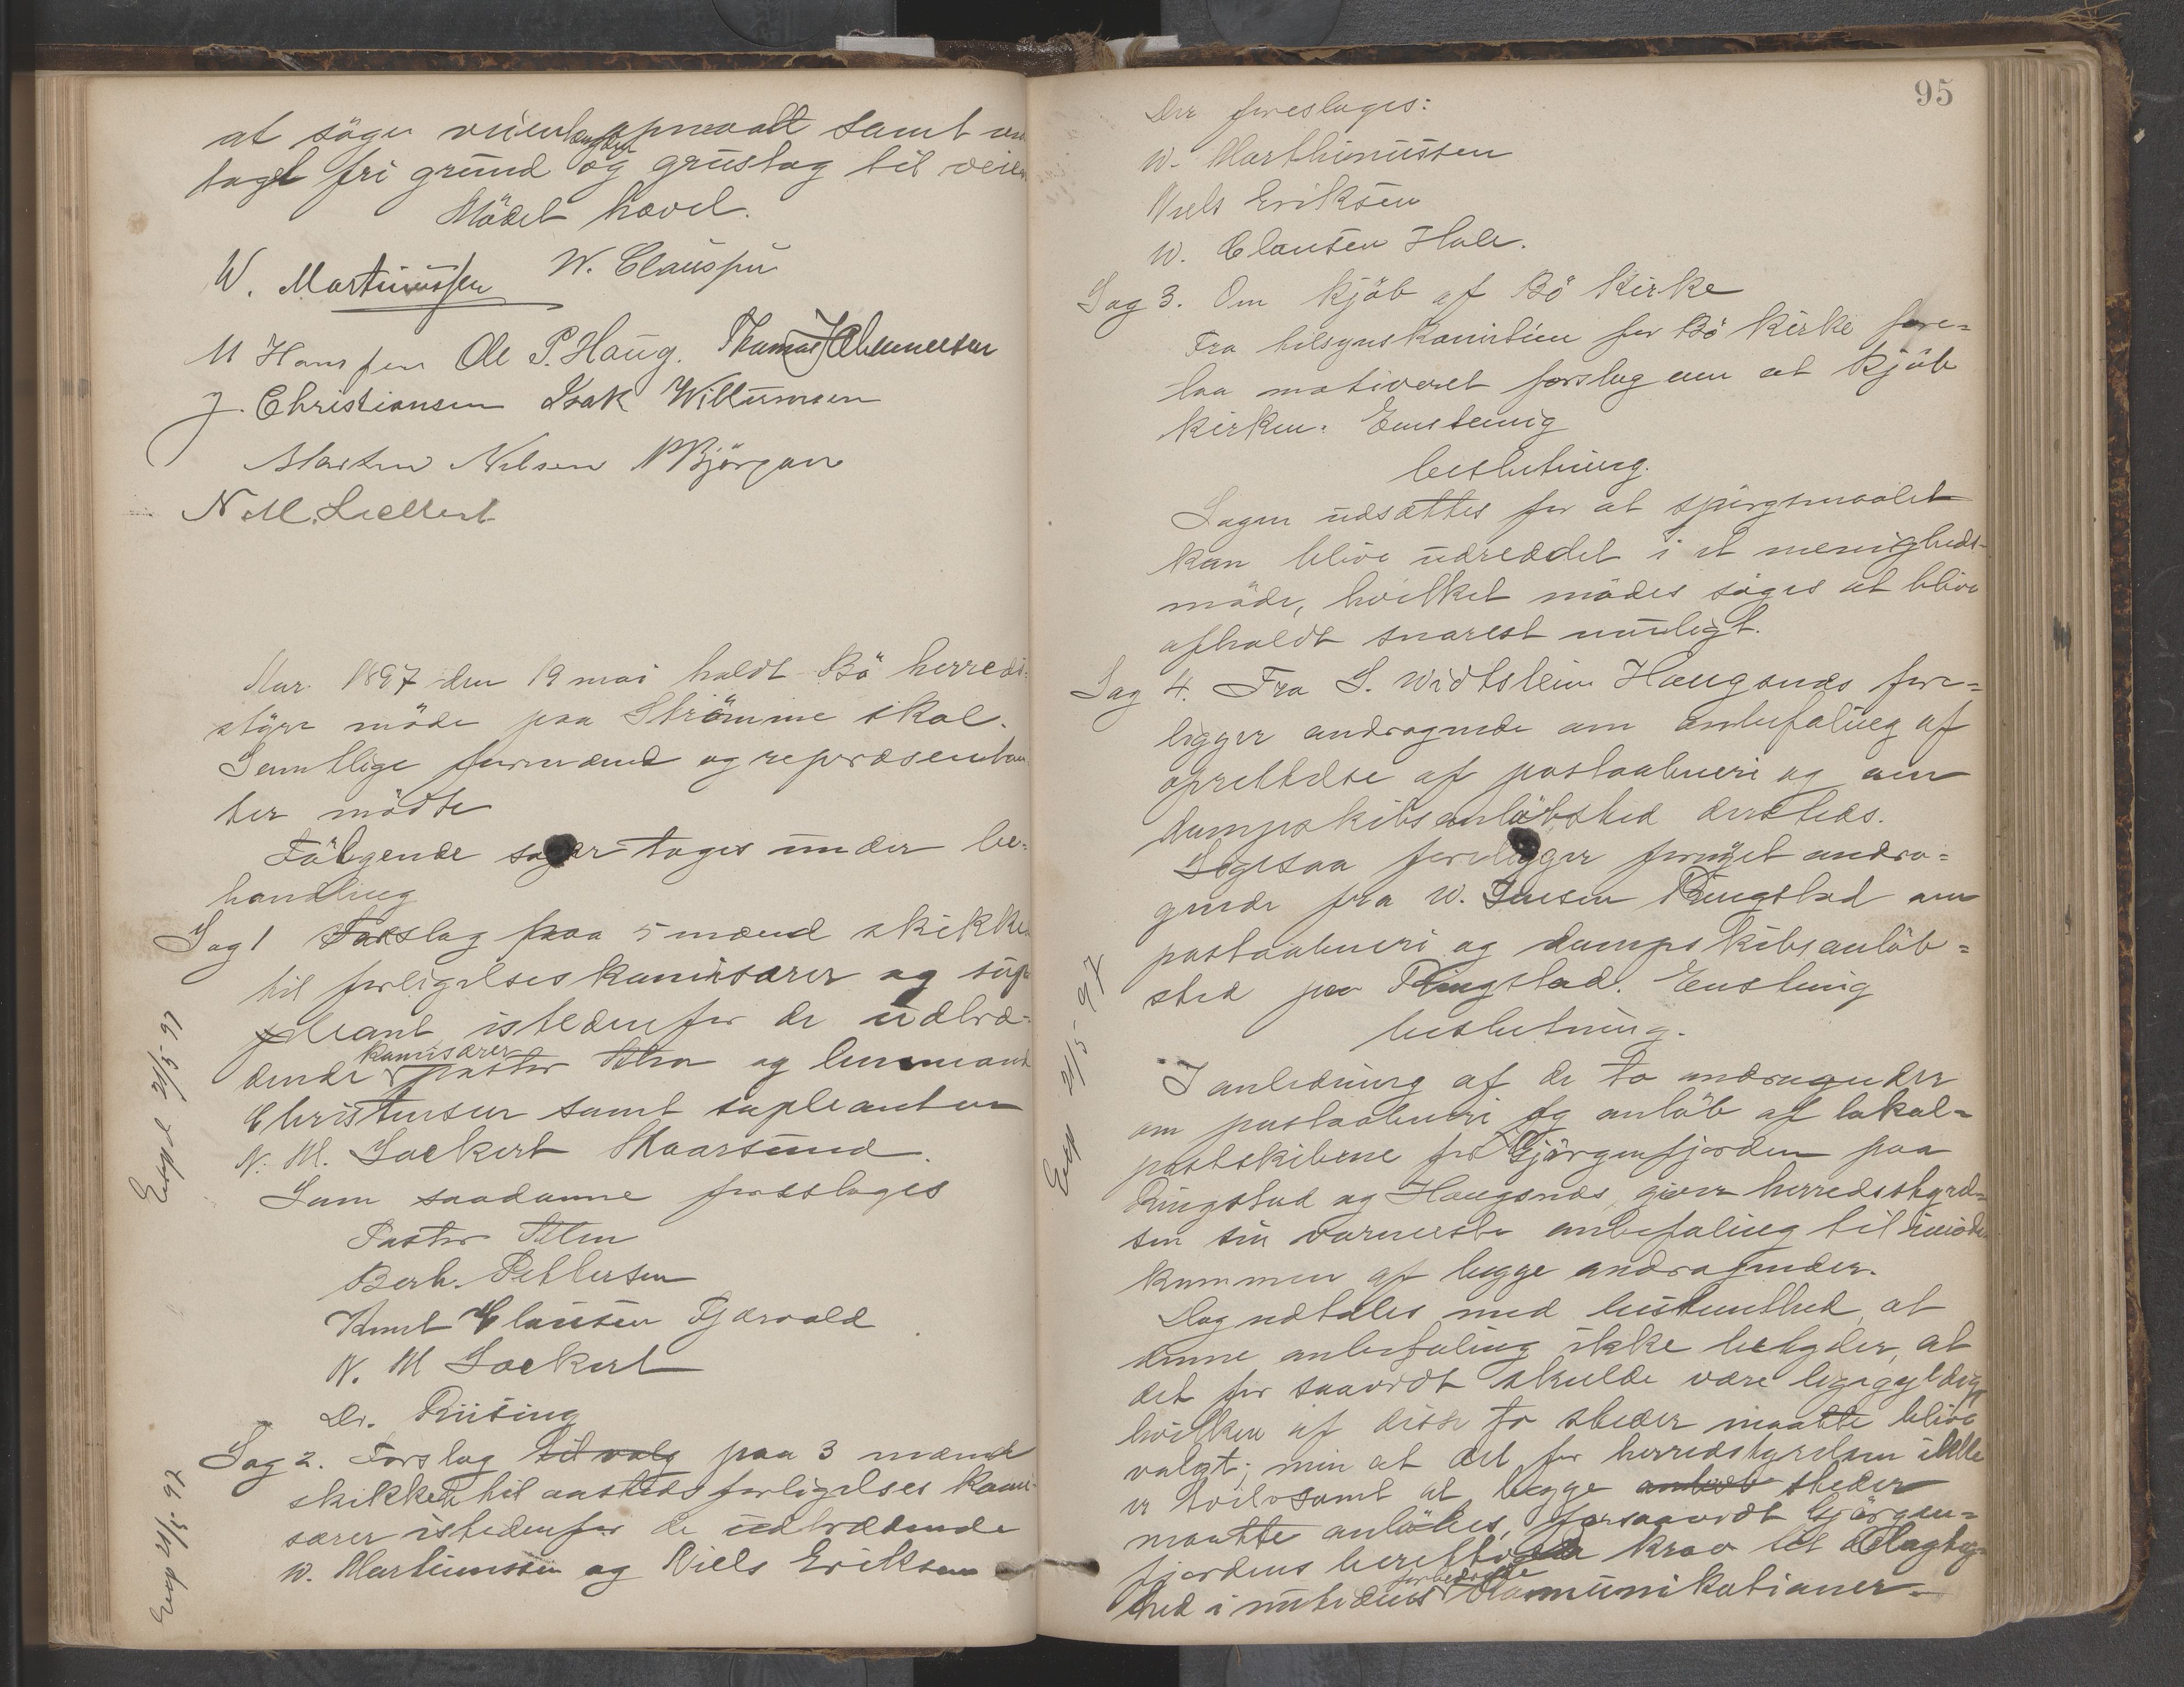 at söge veien opmaalt samt ud
længden
taget fri grund og grustag til veien
Mödet hævet.
W. Martinussen W. Claussen
M Hansen Ole P. Haug. Thomas Johannesen
J. Christiansen Isak Willumsen
Marten Nilsen P Björgan
N. M. Lockert
Aar 1897 den 19 mai holdt Bö herreds-
styre möde paa Strömme skole.
Samtlige formænd og repræsentan
ter mödte
Fölgende sager toges under be-
handling
Sag 1 Forslag paa 5 mænd skikket
til forligelseskommisærer og sup
pleant istedenfor de udtræ-
komisærer
dende pastor Alm og lensmand
Christensen samt supleanten
N. M. Lockert Skaarsund.
Som saadanne foresloges
Pastor Alm
Berh. Pettersen
Knut Clausen Fjærvold
N. M Lockert
Dr. Riising
Sag 2. Forslag til valg paa 3 mænd
skikket til aasteds forligelses komi-
særer istedenfor de udtrædende
W. Martinussen og Niels Eriksen
Exp. 21/5 97
Exp 21/5-97
95
Der foresloges:
W. Marthinussen
Niels Eriksen
W. Clausen Hole.
Sag 3. Om kjöb af Bö Kirke
Fra tilsynskomiteen for Bö Kirke fore-
laa motiveret forslag om at kjöbe
kirken. Enstemig
beslutning.
Sagen udsættes for at spörgsmaalet
kan blive udredet i et menigheds-
möde, hvilket mödes söges at blive
afholdt snarest muligt.
Sag 4. Fra S. Widtsteen Haugsnæs fore-
ligger andragende om anbefaling af
oprettelse af postaabneri og om
dampskibsanlöbssted dersteds.
Ligesaa foreligger fornyet andra-
gende fra W. Jensen Ringstad om
postaabneri og dampskibsanlöb-
sted paa Ringstad. Enstemig
beslutning.
I anledning af de to andragender
om postaabneri og anlöb af lokal-
postskibene for Gjörgenfjorden paa
Ringstad og Haugsnæs, giver herredsstyrel-
sen sin varmeste anbefaling til imöde-
kommen af begge andragender.
Dog udtales med bestemthed, at
denne anbefaling ikke betyder, at
det for saavidt skulde være ligegyldigt
hvilken af disse to steder maatte blive
valgt; men at det for herredstyrelsen ikke
er tvilsomt at begge anlöbs steder
maatte anlöbes, forsaavidt Gjörgen-
fjordens berettigede krav til delagtig-
forbedrede
hed i nutidens komunikationer
Exp 21/5-97